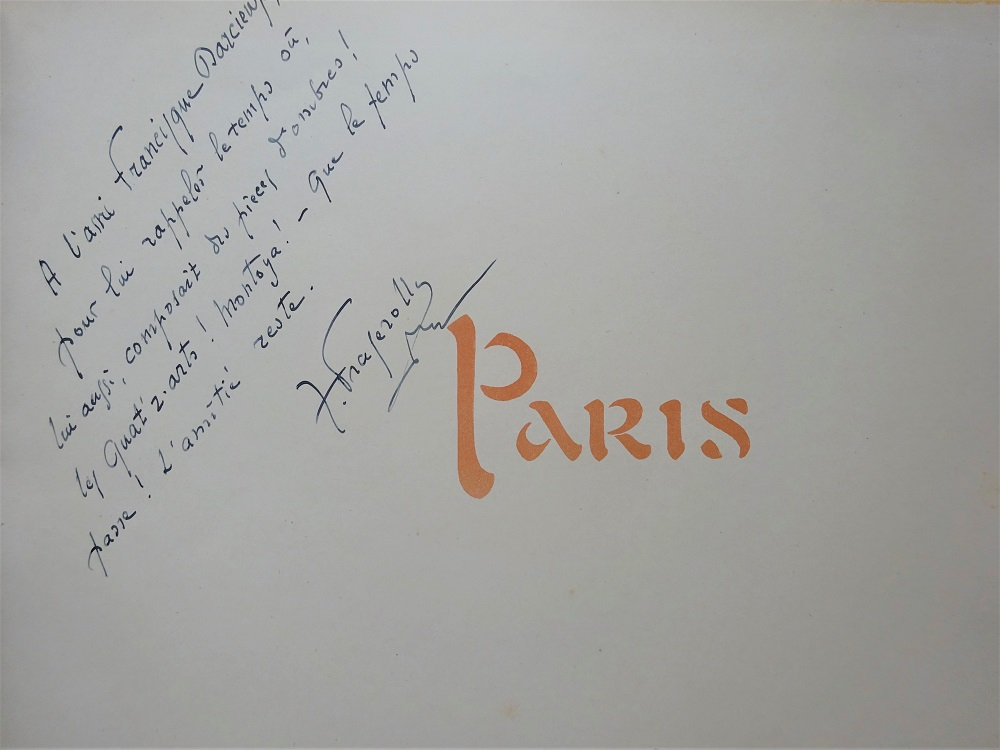 A l'ami Francisque Darcieux,
pour lui rappeler le temps où,
lui aussi, composait des pièces d'ombres!
les Quat'z-arts! Montoya! - Que le temps
passe! L'amitié reste.
G. Fragerolle
PARIS